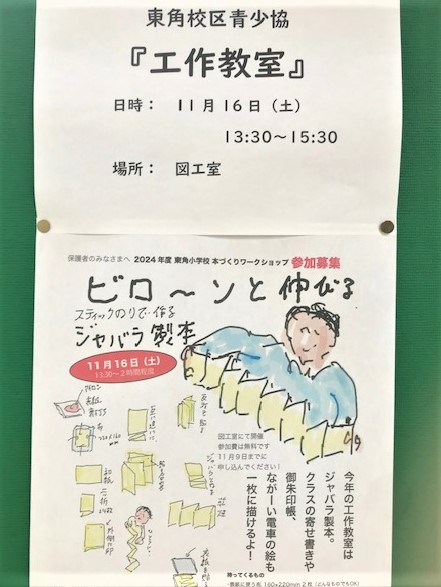 東角校区青少協
『工作教室』
日時： 11月16日（土）
13:30～15:30
場所： 図工室
保護者のみなさまへ 2024年度 東角小学校 本づくりワークショップ 参加募集
ビローンと伸びる
スティックのりで作る
ジャバラ製本
11月16日（土）
13:30～2時間程度
図工室にて開催
参加費は無料です
11月9日までに
申し込んでください！
今年の工作教室は
ジャバラ製本。
クラスの寄せ書きや
御朱印帳、
ながーい電車の絵も
一枚に描けるよ！
持ってくるもの